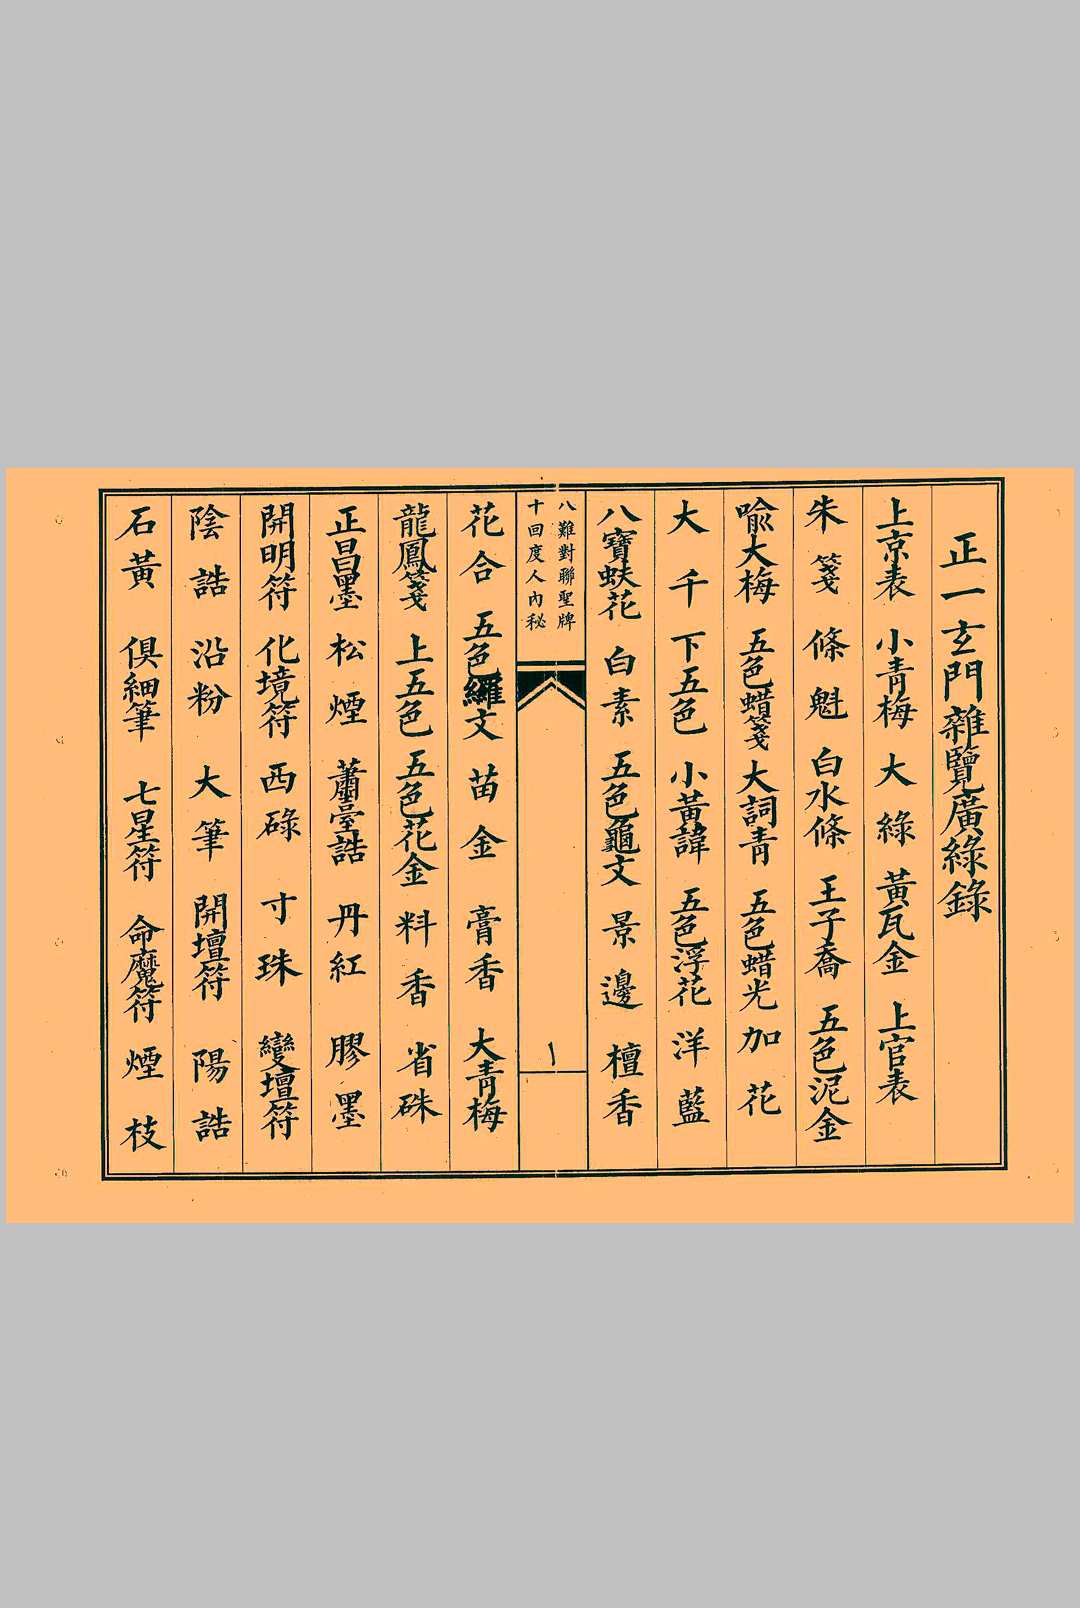 正一玄門雜覽廣綠錄
上京表 小青梅 大綠 黃瓦金 上官表
朱箋 條魁 白水條 王子喬 五色泥金
喻大梅 五色蜡箋 大詞青 五色蜡光 加花
大千 下五色 小黃諱 五色浮花 洋藍
八寶蚨花 白素 五色龜文 景邊 檀香
八難對聯聖牌
十回度人內秘
花合 五色羅文 苗金 膏香 大青梅
龍鳳箋 上五色 五色花金 料香 省硃
正昌墨 松煙 蕭臺誥 丹紅 膠墨
開明符 化境符 西碌 寸珠 變壇符
陰誥 沿粉 大筆 開壇符 陽誥
石黃 俱細筆 七星符 命魔符 煙枝